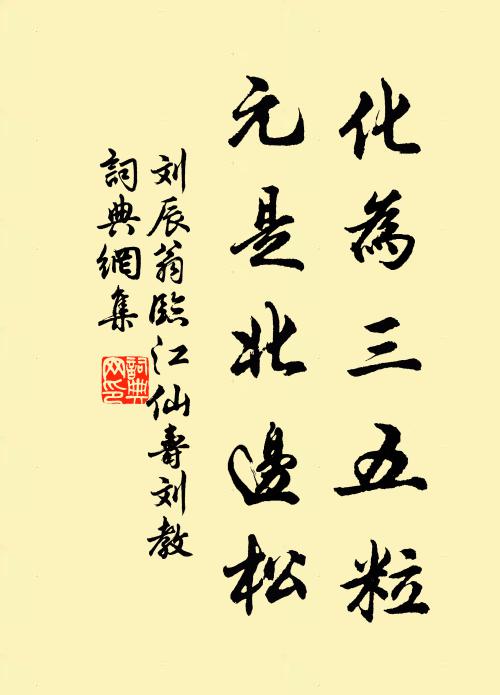 化為三五粒
元是北邊松
刘辰翁臨江仙壽刘教
詞典網集
詞典網印